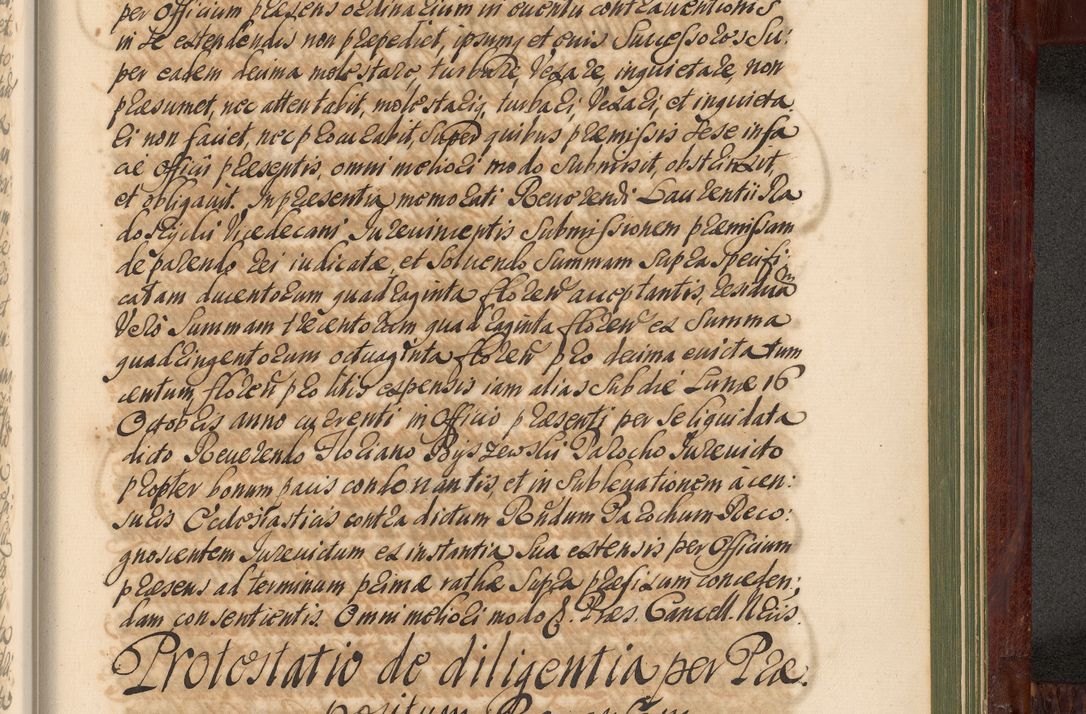 per Officium præsens ordinarium in euentu contrauentionis
in se extendendis non præpediet, ipsumq et euis Successores Su:
per eadem decima molestare, turbare vexare, inquietare, non
præsumet, nec attentabit, molestariq, turbari, vexari, et inquieta
ri non faciet, nec procurabit, Super quibus præmissis sese in fa
ciê Officii præsentis, omni meliori modo submisit, obstrinxit,
et obligauit. In præsentia memorati Reuerendi Laurentii Ra
doszycki Vicedecani Jureuincentis submissionem præmissam
de parendo rei iudicatæ, et Soluendo Summam supra specifi:
catam ducentorum quadraginta floren acceptantis, residuam
Vero Summam trecentorum quadraginta floren ex Summa
quadringentorum octuaginta floren pro decima euicta tum
centum floren pro litis expensis iam alias sub die Lunæ 16
Octobris anno currenti in Officio præsenti per se liquidata
dicto Reuerendo Floriano Ryszewski Parocho Jureuicto
propter bonum pacis condonantis, et in subleuationem à cen:
suris Ecclesiasticis contra dictum Rndum Parochum Reco:
gnoscentem Jureuictum ex instantia sua extensis per Officium
præsens ad terminum primæ rathæ supra præfixum conceden:
dam consentientis. Omni meliori modo &. Præs. Cancell. Neiis.
Protestatio de diligentia per Præ:
positum